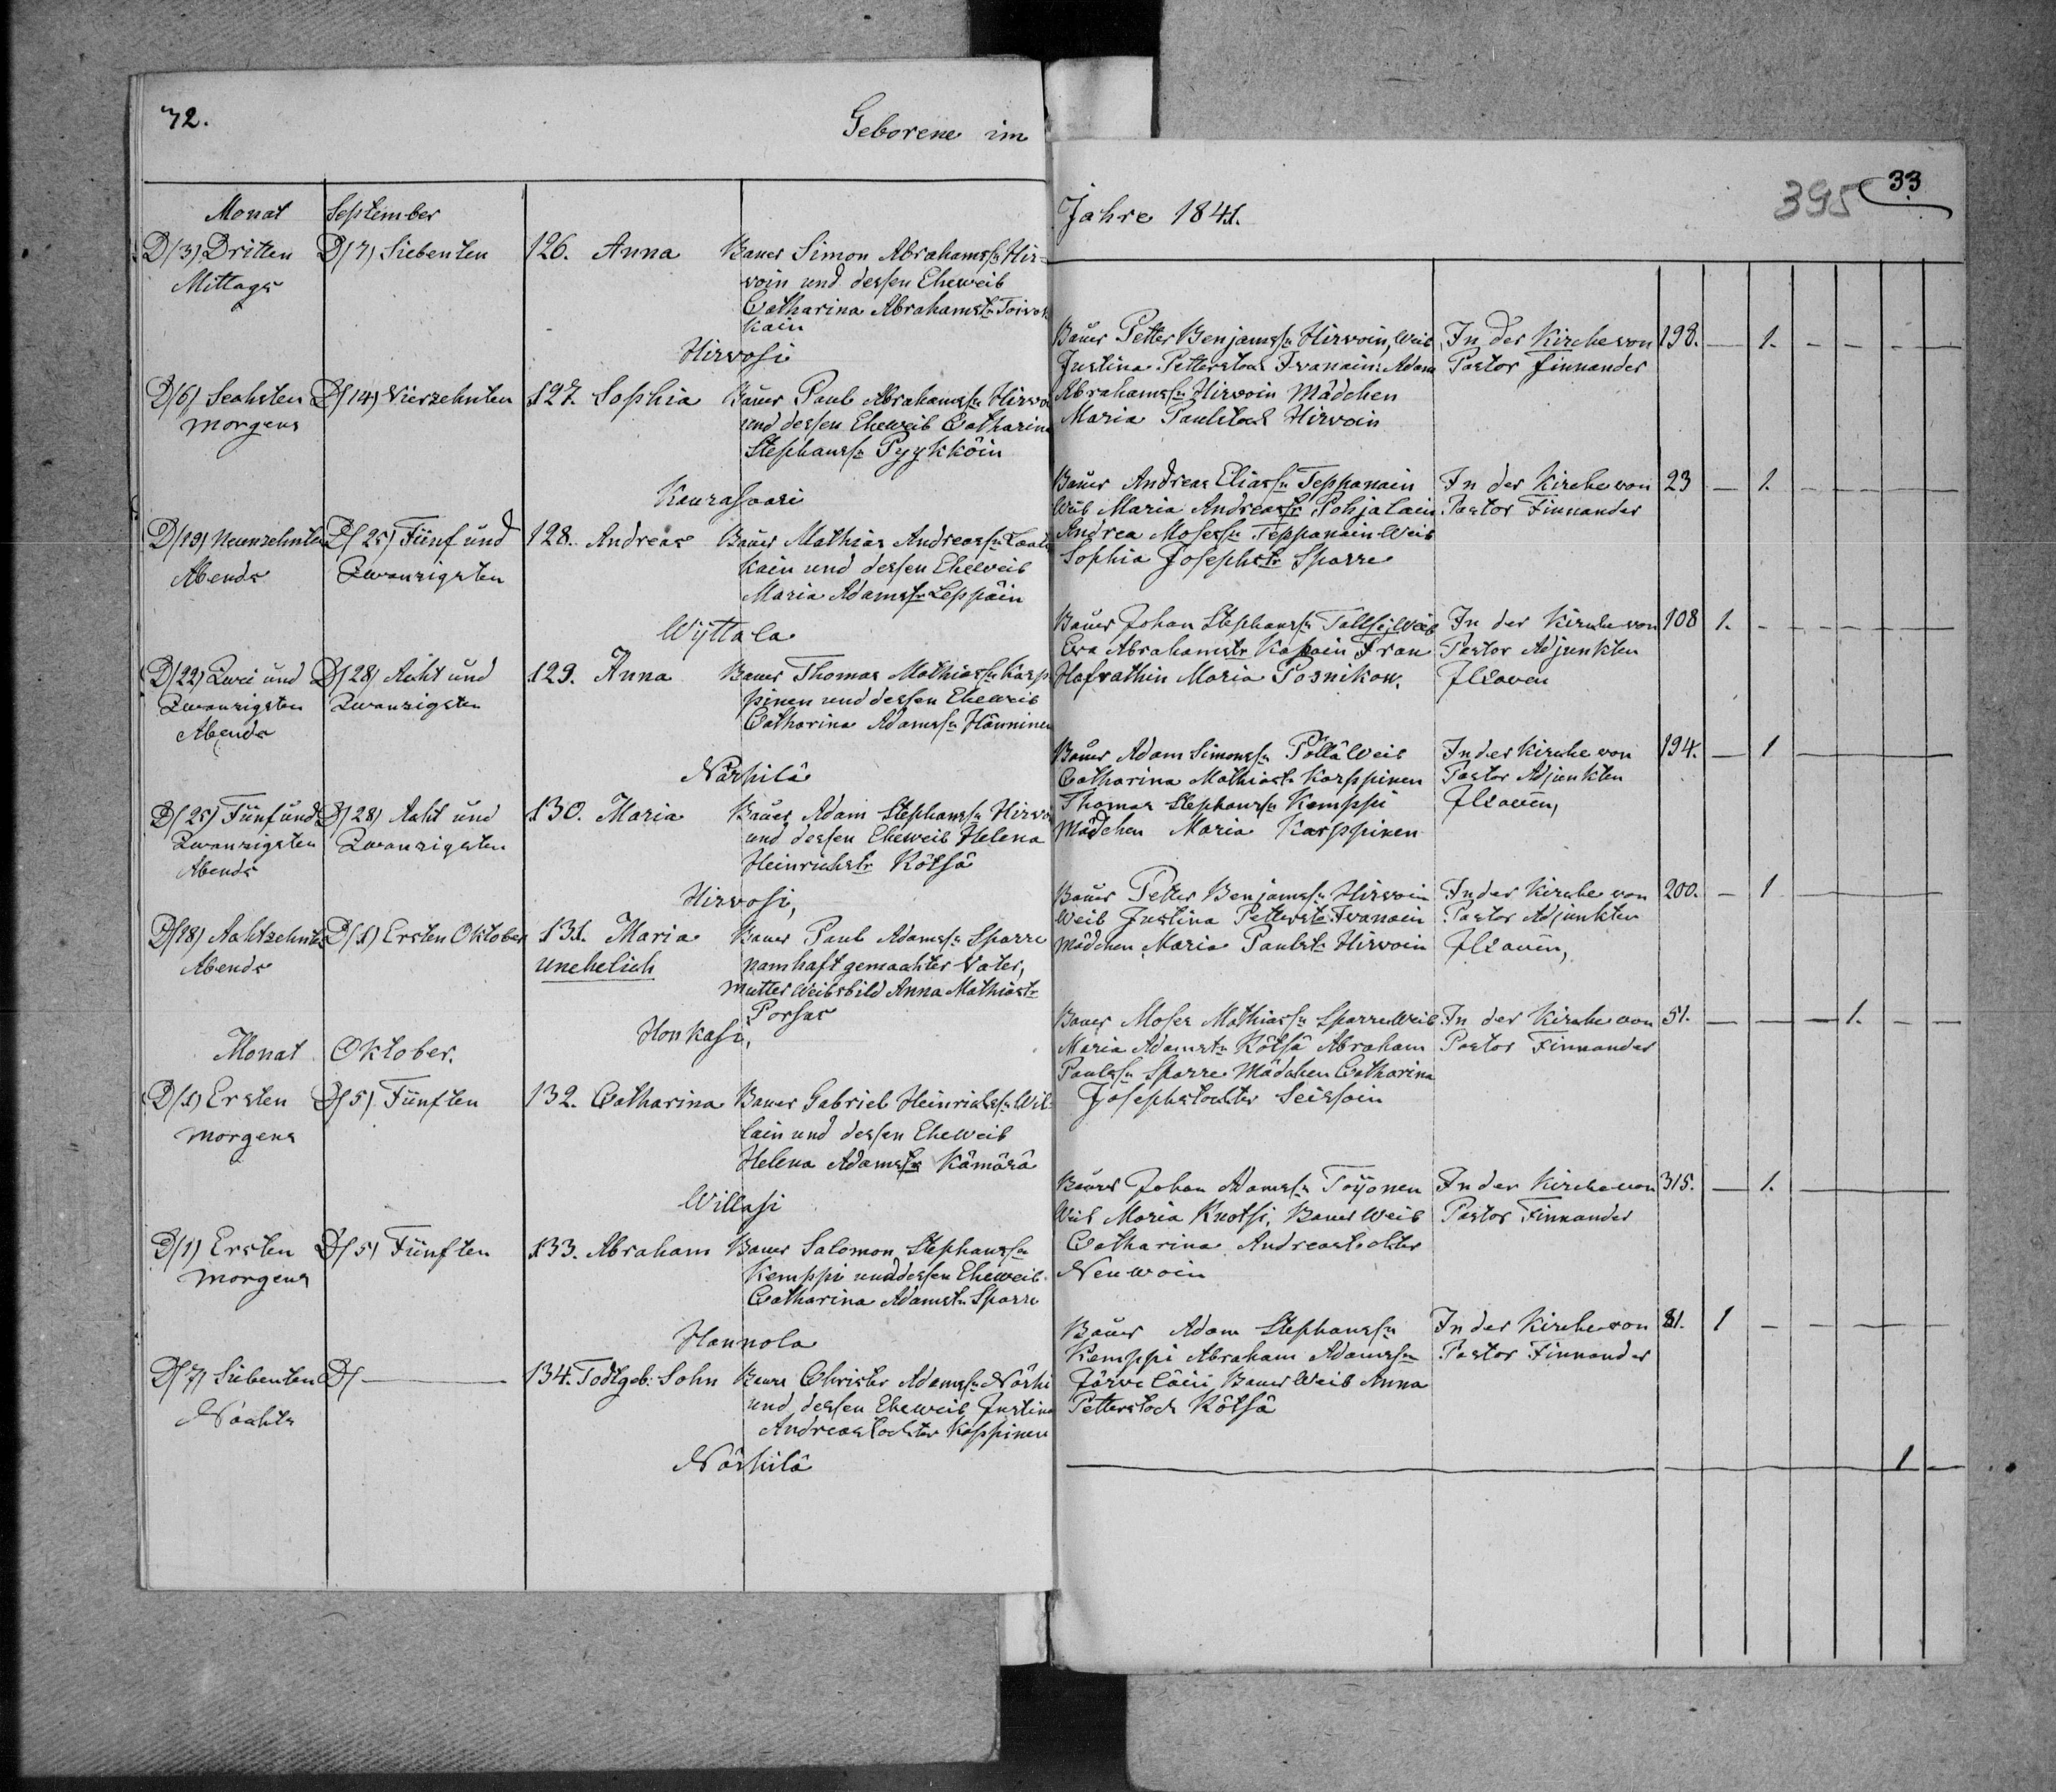 72.
Geborene im
Monat September
D/(3) Dritten D/(7) Siebenten 126. Anna Bauer Simon Abrahamssn Hir-
Mittags woin und dessen Eheweib
Catharina Abrahamstr
kain
Hirvosi
D/(6) Sechsten D/(14) Vierzehnten 127. Sophia Bauer Paul Abrahamssn
morgens und dessen Eheweib Catharina
Pyykköin
D/(19) Neunzehnten D/(25) Fünf und 128. Andreas Bauer Mathias Andreassn
Abends Zwanzigsten kain und dessen Eheweib
Maria Leppäin
Wÿttala
D/(22) Zwei und D/(28) Acht und 129. Anna Bauer Thomas Mathiassn Karp
Zwanzigsten Zwanzigsten pinen und dessen Eheweib
Abends Catharina Hänninen
Närhilä
D/(25) Fünf und D/(28) Acht und 130. Maria Bauer Adam Stephanssn
Zwanzigsten Zwanzigsten und dessen Eheweib Helena
Abends Heinrichstr Kötsä
Hirvosi,
D/(18) Achtzehnten D/(1) Ersten Oktober 131. Maria Bauer Paul Adamssn Sparre
Abends unehelich namhaft gemachter Vater,
mutter Weibsbild Anna Mathiastr
Honkasi,
Monat Oktober.
D/(1) Ersten D/(5) Fünften 132. Catharina Bauer Gabriel Heinrichssn Wil-
morgens lain und dessen Eheweib
Helena Kämärä
Willasi
D/(1) Ersten D/(5) Fünften 133. Abraham Bauer Salomon Stephanssn
morgens Kemppi und dessen Eheweib
Catharina Adamstr Sparre
Hannola
D/(7) Siebenten D/ — 134. Todtgeb. Sohn Christer Adamssn Närhi
Nachts und dessen Eheweib Justina
Andreastochter
Närhilä
395 33
Jahre 1841.
Bauer Petter Benjamssn Hirvoin, Weib In der Kirche von 198. — 1. — — — —
Justina Petterstoch Ivanain, Adam Pastor Finnander
Abrahamssn Hirvoin Mädchen
Maria Hirvoin
Bauer Andreas Eliassn Teppanain In der Kirche von 23 — 1. — — — —
Weib Maria Andreastr Pohjalain Pastor Finnander
Andrea Mosessn Teppanain Weib
Sophia Josephstr Sparre
Bauer Johan Stephanssn Weib In der Kirche von 108 1. — — — — —
Eva Abrahamstr Frau Pastor Adjunkten
Hofrathin Maria Posnikow.
Bauer Adam Simonssn Pöllä Weib In der Kirche von 194. — 1 — — — —
Catharina Mathiastr Karppinen Pastor Adjunkten
Thomas Stephanssn Kemppi
Mädchen Maria Karppinen
Bauer Petter Benjamssn Hirvoin In der Kirche von 200. — 1 — — — —
Weib Justina Petterstr Ivanain Pastor Adjunkten
Mädchen Maria Paulstr Hirvoin
Bauer Moses Mathiassn Sparre Weib In der Kirche von 51. — — — 1. — —
Maria Adamstr Kötsä Abraham Pastor Finnander
Paulssn Sparre Mädchen Catharina
Josephstochter Seissoin
Bauer Johan Adamssn Toijonen In der Kirche von 315. — 1. — — — —
Weib Maria Knotsi, Bauer Weib Pastor Finnander
Catharina Andreastochter
Neuwoin
Bauer Adam Stephanssn In der Kirche von 81. 1 — — — — —
Kemppi Abraham Adamssn Pastor Finnander
Järveläin Bauer Weib Anna
Petterstoch Kötsä
1